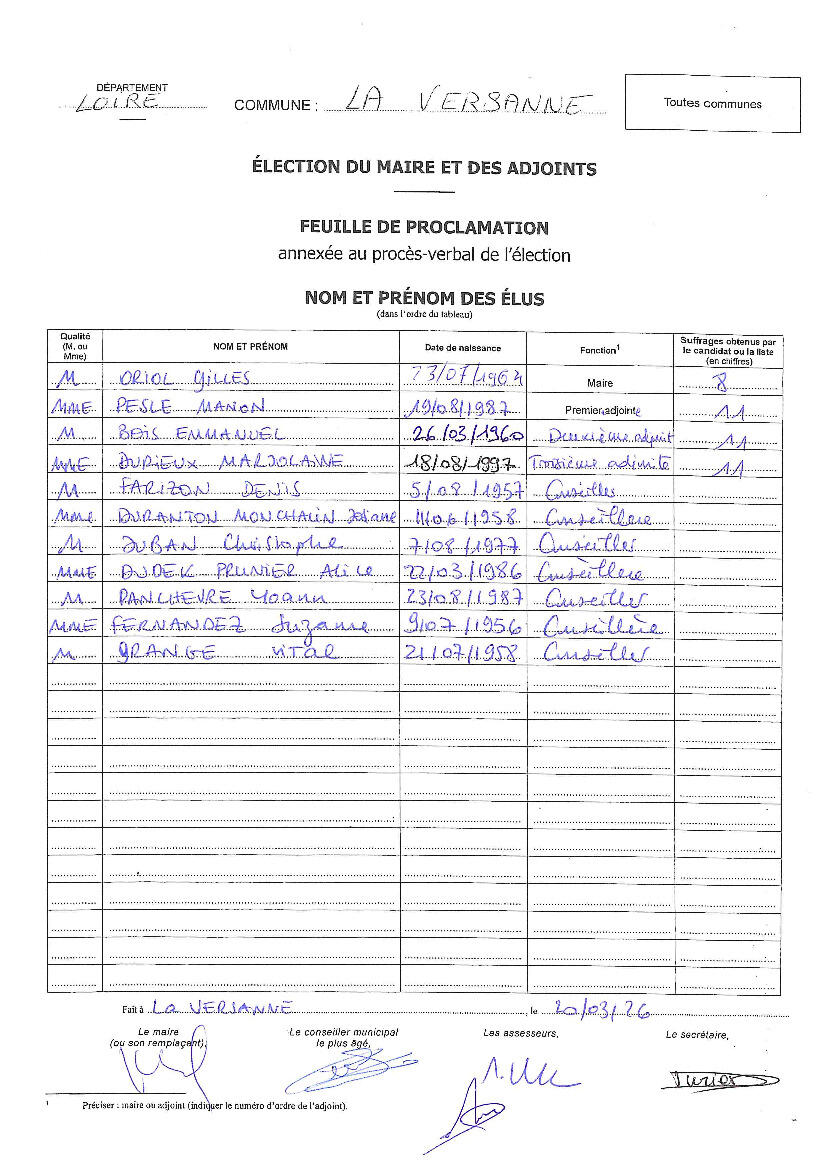 DÉPARTEMENT
LOIRE
COMMUNE : LA VERSANNE
Toutes communes
ÉLECTION DU MAIRE ET DES ADJOINTS
FEUILLE DE PROCLAMATION
annexée au procès-verbal de l'élection
NOM ET PRÉNOM DES ÉLUS
(dans l'ordre du tableau)
Qualité (M. ou Mme) NOM ET PRÉNOM Date de naissance Fonction1 Suffrages obtenus par le candidat ou la liste (en chiffres)
M ORIOL GILLES 23/07/1964 Maire 8
MME PESLE MANON 19/08/1987 Premier adjointe 11
M BOIS EMMANUEL 26/03/1960 Deuxième adjoint 11
MME DURIEUX MARJOLAINE 18/08/1997 Troisième adjointe 11
M FARIZON DENIS 5/08/1957 Conseiller
MME DURANTON MONCHALIN Josiane 11/06/1958 Conseillère
M DUBAN Christophe 7/08/1977 Conseiller
MME DUDEK PRUNIER Alice 22/03/1986 Conseillère
M PANCHEVRE Yoann 23/08/1987 Conseiller
MME FERNANDEZ Suzanne 9/07/1956 Conseillère
M GRANGE VITAL 21/07/1958 Conseiller
Fait à La VERSANNE, le 20/03/26
Le maire (ou son remplaçant), Le conseiller municipal le plus âgé, Les assesseurs, Le secrétaire,
1 Préciser : maire ou adjoint (indiquer le numéro d'ordre de l'adjoint).